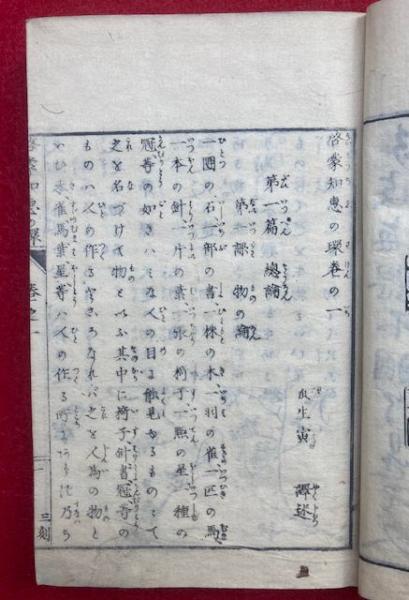 啓蒙知恵の環巻の一
瓜生寅 譯述
第一篇 總論
第一課 物の論
一團の石一部の書一株の木一羽の雀一匹の馬
一本の針一片の葉一張の椅子一點の星一種の
冠等の如きハミな人の目に能見ゆるものにて
之を名づけて物といふ其中に椅子針書冠等の
ものハ人の作るところなれバ之を人為の物と
いひ木雀馬葉星等ハ人の作る所
啓蒙知恵の環
巻之一
一
三刻